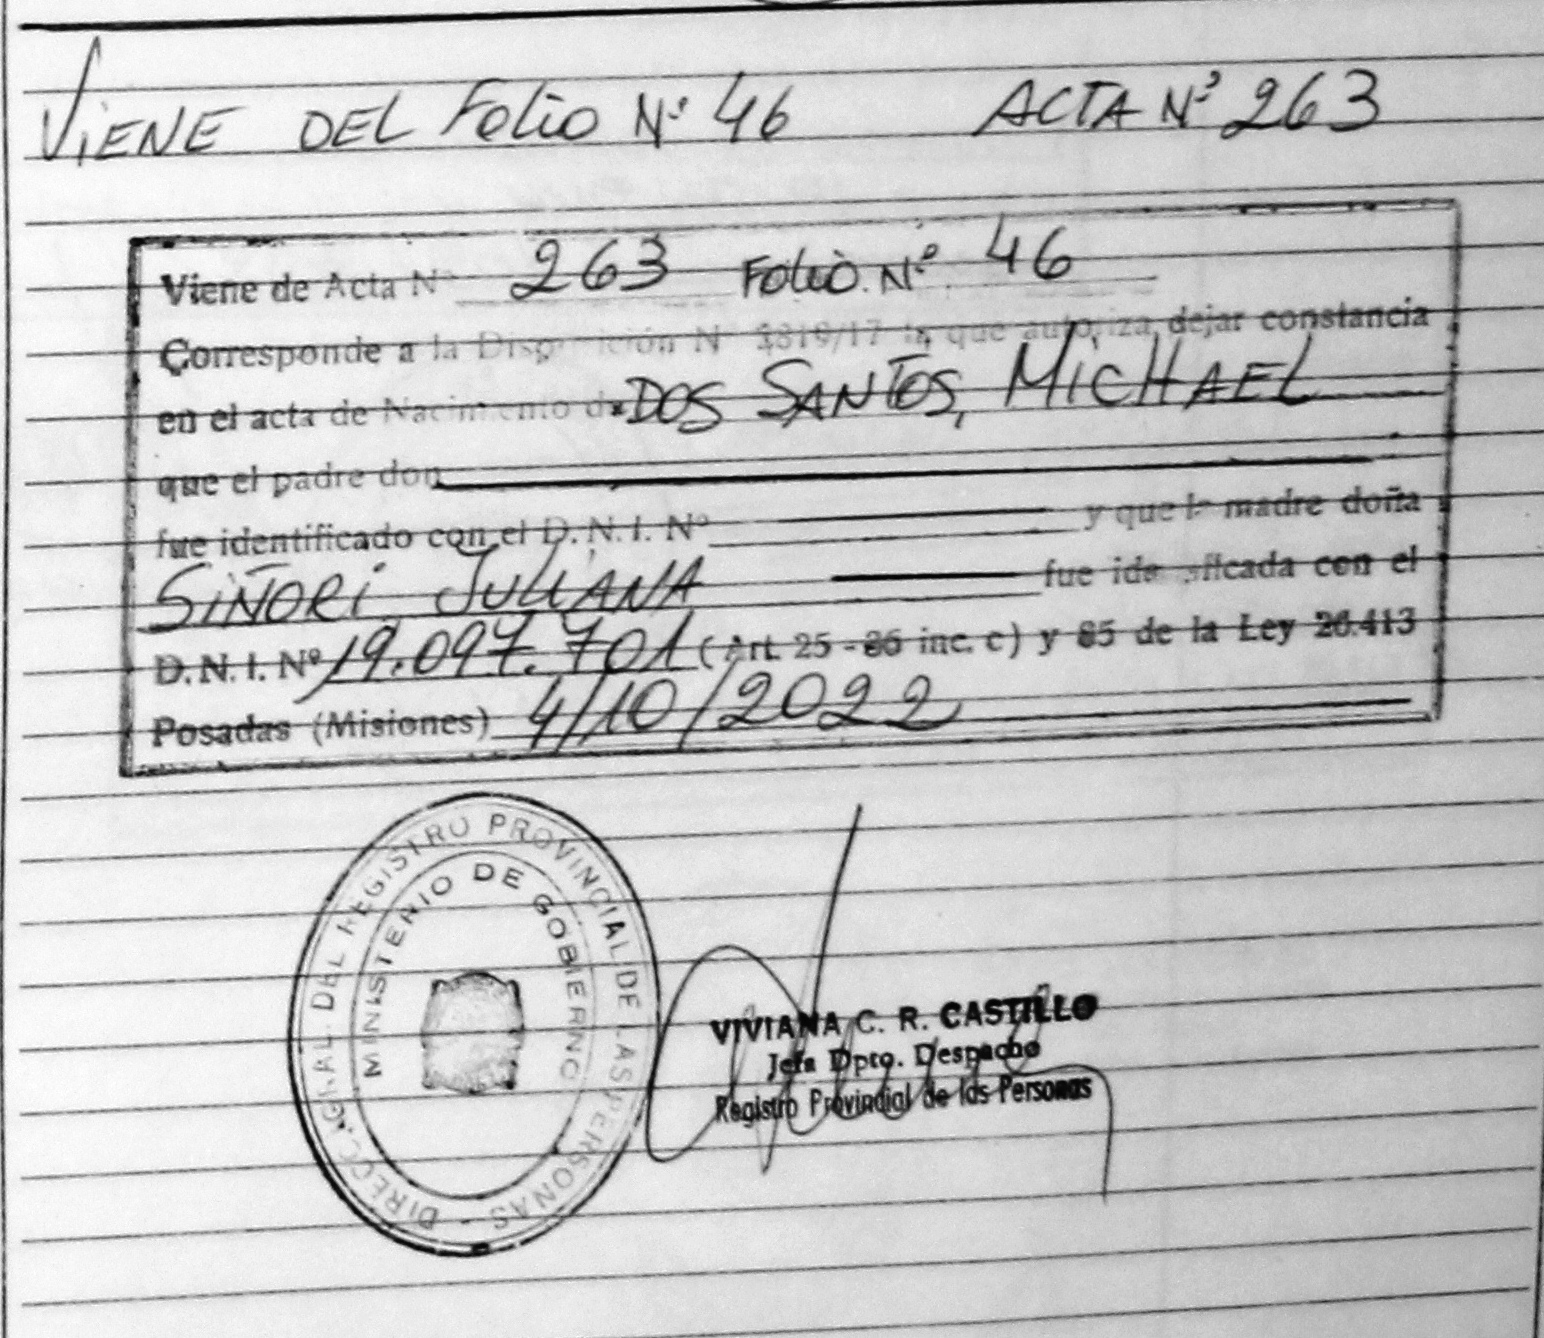 ViENE DEL Folio Nº 46 ACTA Nº 263
Viene de Acta Nº 263 Folio. Nº 46
Corresponde a la Disposición Nº 3819/17 la que autoriza dejar constancia
en el acta de Nacimiento de DOS SANTOS, MiCHAEL
que el padre don
fue identificado con el D. N. I. Nº y que la madre doña
SiÑORi JULIANA fue identificada con el
D. N. I. Nº 19.097.701 (Art. 25 - 36 inc. c) y 85 de la Ley 26.413
Posadas (Misiones) 4/10/2022
DIRECC. GRAL. DEL REGISTRO PROVINCIAL DE LAS PERSONAS -
MINISTERIO DE GOBIERNO
VIVIANA C. R. CASTILLO
Jefa Dpto. Despacho
Registro Provincial de las Personas